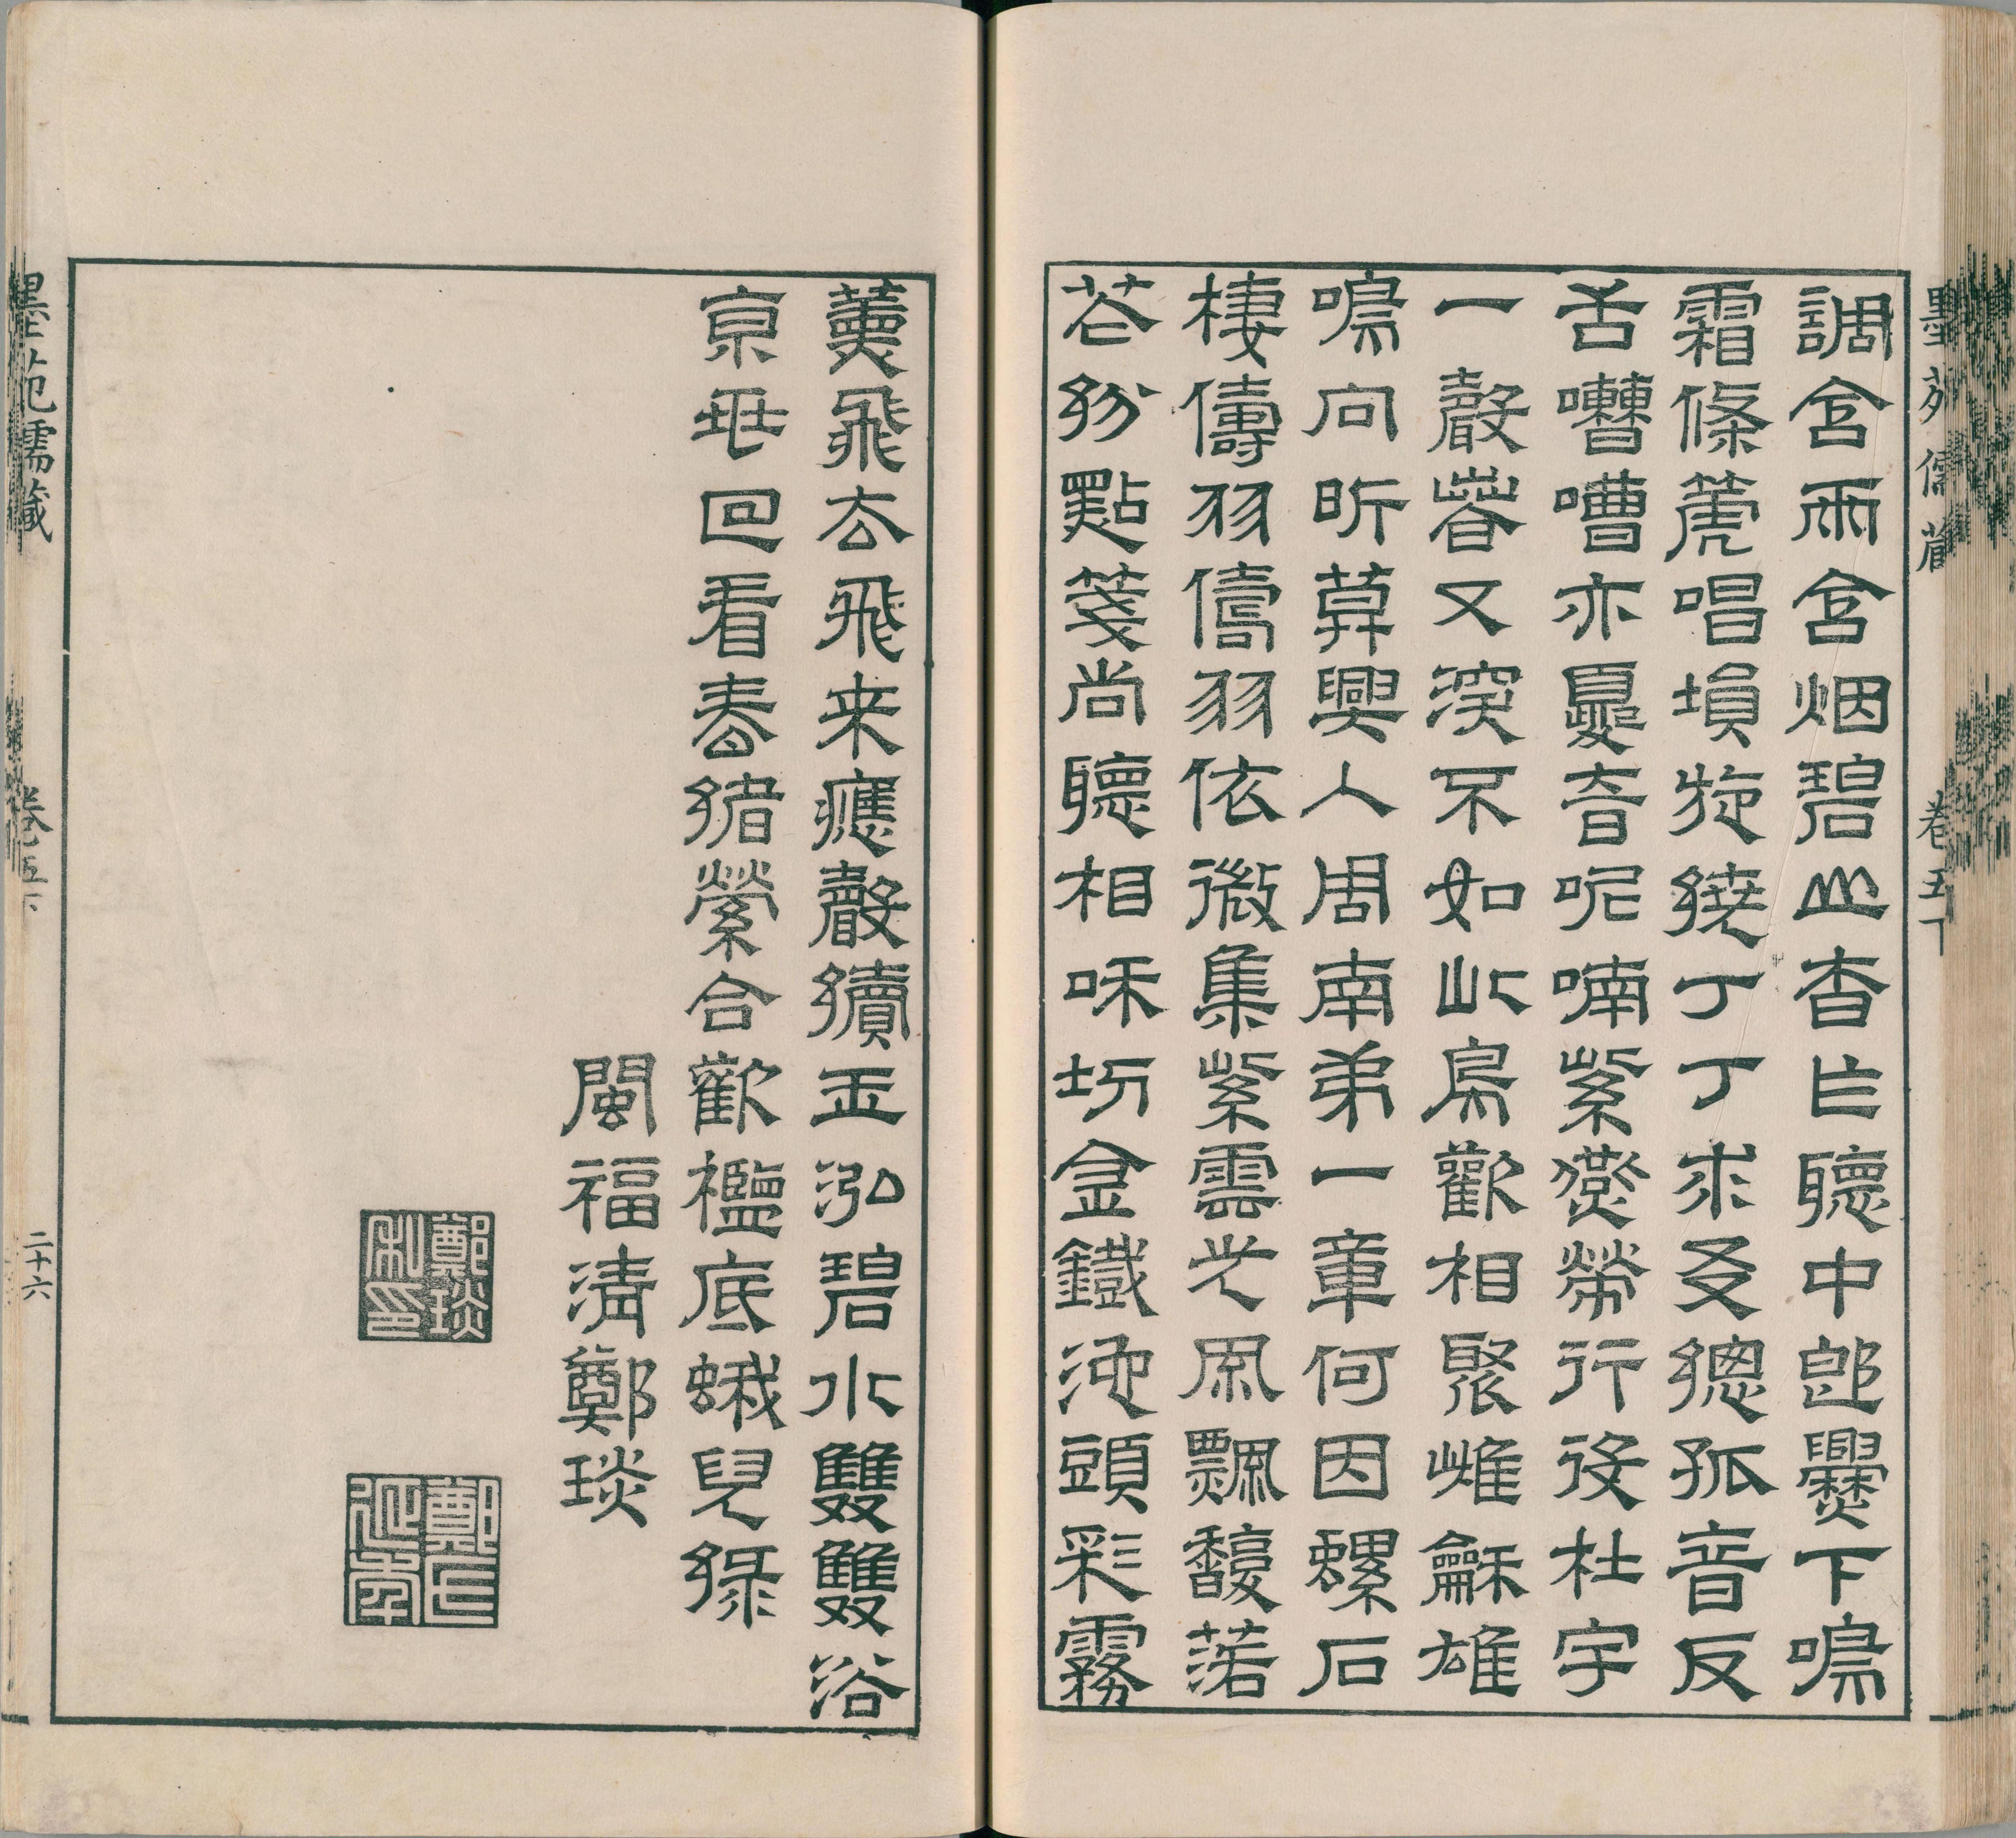 墨苑儒藏 卷五下
調含雨含烟碧山杳乍聽中郎爨下鳴
霜條篪唱塤旋繞丁丁求友德孤音反
舌囋嘈亦戞音呢喃紫燕勞行役杜宇
一聲春又深不如此鳥歡相聚雌龢雄
鳴向昕草興人周南弟一章何因螺石
棲儔羽儔羽依微集紫雲光風飄馥諾
花粉點箋尚聽相和坊金鐵池頭彩霧
蔥飛去飛来應聲續玉泓碧水雙雙浴
京世回看春猶縈合歡襤底蛾兒綠
閩福清鄭琰
鄭琰私印
鄭氏
墨苑儒藏 卷五下 二十六